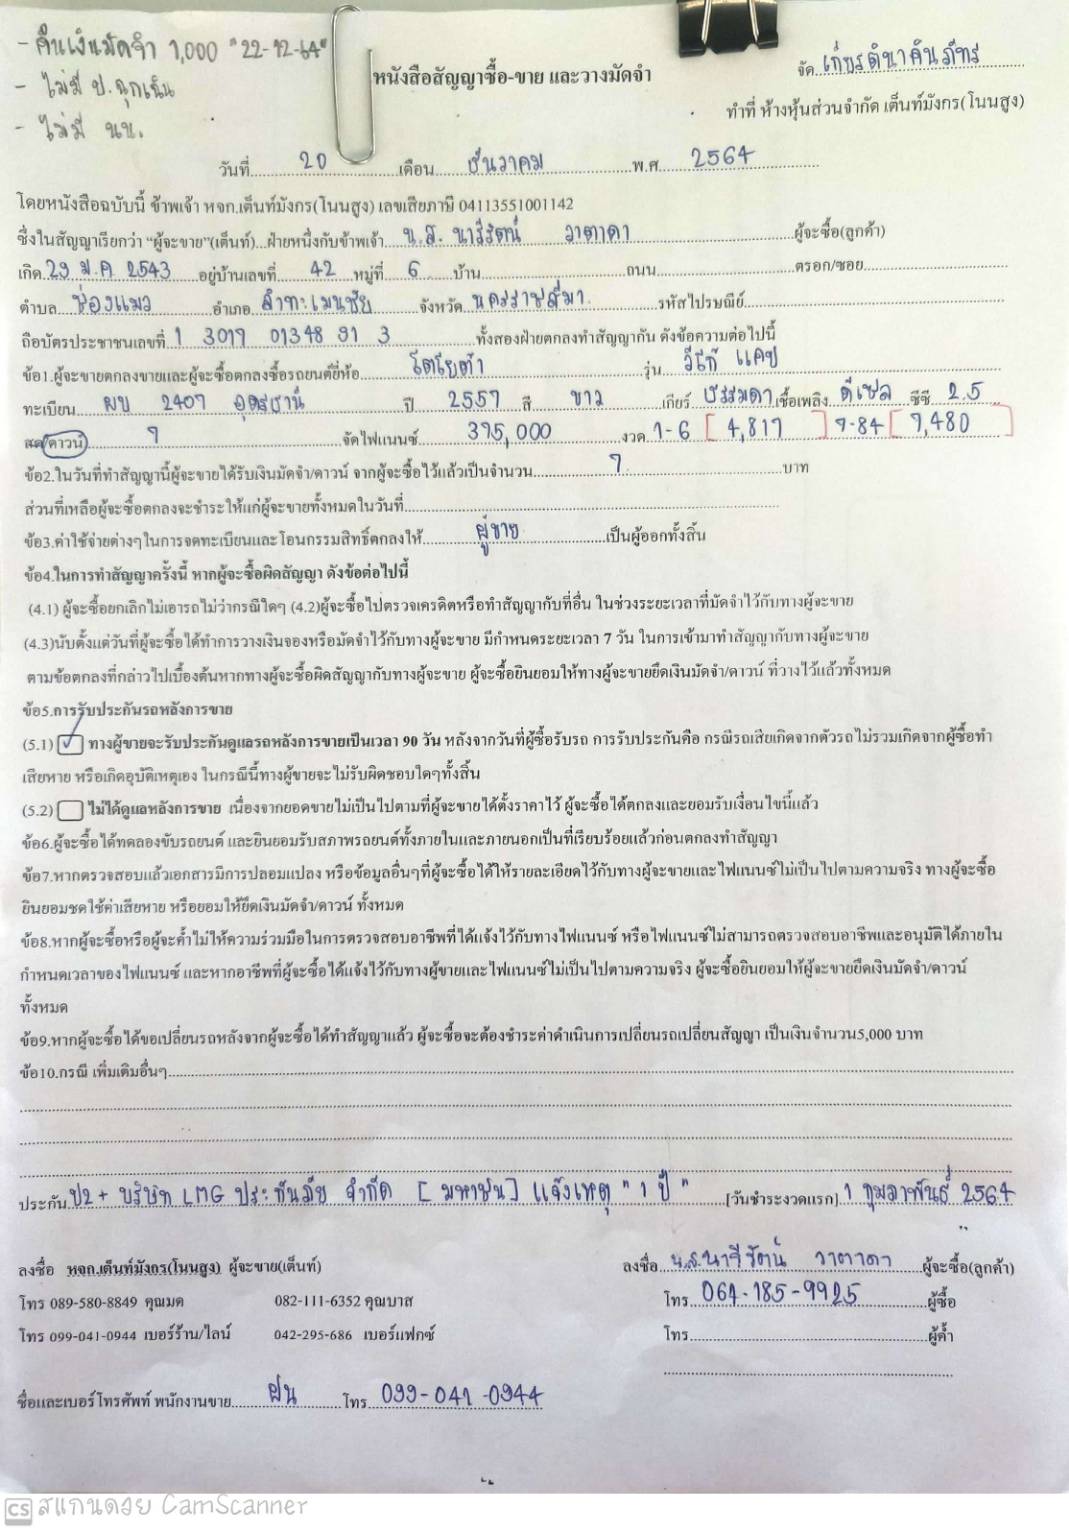 - คืนเงินมัดจำ 1,000 "22-12-64"
- ไม่มี ป.ฉุกเฉิน
- ไม่มี นข.
หนังสือสัญญาซื้อ-ขาย และวางมัดจำ
จัด เกียรตินาคินภัทร
ทำที่ ห้างหุ้นส่วนจำกัด เต็นท์มังกร(โนนสูง)
วันที่ 20 เดือน ธันวาคม พ.ศ. 2564
โดยหนังสือฉบับนี้ ข้าพเจ้า หจก.เต็นท์มังกร(โนนสูง) เลขเสียภาษี 04113551001142
ซึ่งในสัญญาเรียกว่า "ผู้จะขาย"(เต็นท์)...ฝ่ายหนึ่งกับข้าพเจ้า น.ส. นารีรัตน์ วาตาดา ผู้จะซื้อ(ลูกค้า)
เกิด 29 ม.ค 2543 อยู่บ้านเลขที่ 42 หมู่ที่ 6 บ้าน ถนน ตรอก/ซอย
ตำบล ช่องแมว อำเภอ ลำทะเมนชัย จังหวัด นครราชสีมา รหัสไปรษณีย์
ถือบัตรประชาชนเลขที่ 1 3019 01348 91 3 ทั้งสองฝ่ายตกลงทำสัญญากัน ดังข้อความต่อไปนี้
ข้อ1.ผู้จะขายตกลงขายและผู้จะซื้อตกลงซื้อรถยนต์ยี่ห้อ โตโยต้า รุ่น วีโก้ แคป
ทะเบียน ผข 2407 อุดรธานี ปี 2557 สี ขาว เกียร์ ธรรมดา เชื้อเพลิง ดีเซล ซีซี 2.5
สด/ดาวน์ ? จัดไฟแนนซ์ 395,000 งวด 1-6 [4,817] 7-84 [7,480]
ข้อ2.ในวันที่ทำสัญญานี้ผู้จะขายได้รับเงินมัดจำ/ดาวน์ จากผู้จะซื้อไว้แล้วเป็นจำนวน ? บาท
ส่วนที่เหลือผู้จะซื้อตกลงจะชำระให้แก่ผู้จะขายทั้งหมดในวันที่
ข้อ3.ค่าใช้จ่ายต่างๆในการจดทะเบียนและโอนกรรมสิทธิ์ตกลงให้ ผู้ขาย เป็นผู้ออกทั้งสิ้น
ข้อ4.ในการทำสัญญาครั้งนี้ หากผู้จะซื้อผิดสัญญา ดังข้อต่อไปนี้
(4.1) ผู้จะซื้อยกเลิกไม่เอารถไม่ว่ากรณีใดๆ (4.2)ผู้จะซื้อไปตรวจเครดิตหรือทำสัญญากับที่อื่น ในช่วงระยะเวลาที่มัดจำไว้กับทางผู้จะขาย
(4.3)นับตั้งแต่วันที่ผู้จะซื้อได้ทำการวางเงินจองหรือมัดจำไว้กับทางผู้จะขาย มีกำหนดระยะเวลา 7 วัน ในการเข้ามาทำสัญญากับทางผู้จะขาย
ตามข้อตกลงที่กล่าวไปเบื้องต้นหากทางผู้จะซื้อผิดสัญญากับทางผู้จะขาย ผู้จะซื้อยินยอมให้ทางผู้จะขายยึดเงินมัดจำ/ดาวน์ ที่วางไว้แล้วทั้งหมด
ข้อ5.การรับประกันรถหลังการขาย
(5.1) ☑ ทางผู้ขายจะรับประกันดูแลรถหลังการขายเป็นเวลา 90 วัน หลังจากวันที่ผู้ซื้อรับรถ การรับประกันคือ กรณีรถเสียเกิดจากตัวรถ ไม่รวมเกิดจากผู้ซื้อทำ
เสียหาย หรือเกิดอุบัติเหตุเอง ในกรณีนี้ทางผู้ขายจะไม่รับผิดชอบใดๆทั้งสิ้น
(5.2) ☐ ไม่ได้ดูแลหลังการขาย เนื่องจากยอดขายไม่เป็นไปตามที่ผู้จะขายได้ตั้งราคาไว้ ผู้จะซื้อได้ตกลงและยอมรับเงื่อนไขนี้แล้ว
ข้อ6.ผู้จะซื้อได้ทดลองขับรถยนต์ และยินยอมรับสภาพรถยนต์ทั้งภายในและภายนอกเป็นที่เรียบร้อยแล้วก่อนตกลงทำสัญญา
ข้อ7.หากตรวจสอบแล้วเอกสารมีการปลอมแปลง หรือข้อมูลอื่นๆที่ผู้จะซื้อได้ให้รายละเอียดไว้กับทางผู้จะขายและไฟแนนซ์ไม่เป็นไปตามความจริง ทางผู้จะซื้อ
ยินยอมชดใช้ค่าเสียหาย หรือยอมให้ยึดเงินมัดจำ/ดาวน์ ทั้งหมด
ข้อ8.หากผู้จะซื้อหรือผู้จะค้ำไม่ให้ความร่วมมือในการตรวจสอบอาชีพที่ได้แจ้งไว้กับทางไฟแนนซ์ หรือไฟแนนซ์ไม่สามารถตรวจสอบอาชีพและอนุมัติได้ภายใน
กำหนดเวลาของไฟแนนซ์ และหากอาชีพที่ผู้จะซื้อได้แจ้งไว้กับทางผู้ขายและไฟแนนซ์ไม่เป็นไปตามความจริง ผู้จะซื้อยินยอมให้ผู้จะขายยึดเงินมัดจำ/ดาวน์
ทั้งหมด
ข้อ9.หากผู้จะซื้อได้ขอเปลี่ยนรถหลังจากผู้จะซื้อได้ทำสัญญาแล้ว ผู้จะซื้อจะต้องชำระค่าดำเนินการเปลี่ยนรถเปลี่ยนสัญญา เป็นเงินจำนวน5,000 บาท
ข้อ10.กรณี เพิ่มเติมอื่นๆ
ประกัน ป2+ บริษัท LMG ประกันภัย จำกัด [มหาชน] แจ้งเหตุ "1 ปี" [วันชำระงวดแรก] 1 กุมภาพันธ์ 2564
ลงชื่อ หจก.เต็นท์มังกร(โนนสูง) ผู้จะขาย(เต็นท์) ลงชื่อ น.ส.นารีรัตน์ วาตาดา ผู้จะซื้อ(ลูกค้า)
โทร 089-580-8849 คุณมด 082-111-6352 คุณบาส โทร 064-185-9925 ผู้ซื้อ
โทร 099-041-0944 เบอร์ร้าน/ไลน์ 042-295-686 เบอร์แฟกซ์ โทร ผู้ค้ำ
ชื่อและเบอร์โทรศัพท์ พนักงานขาย ฝน โทร 099-041-0944
CS สแกนด้วย CamScanner